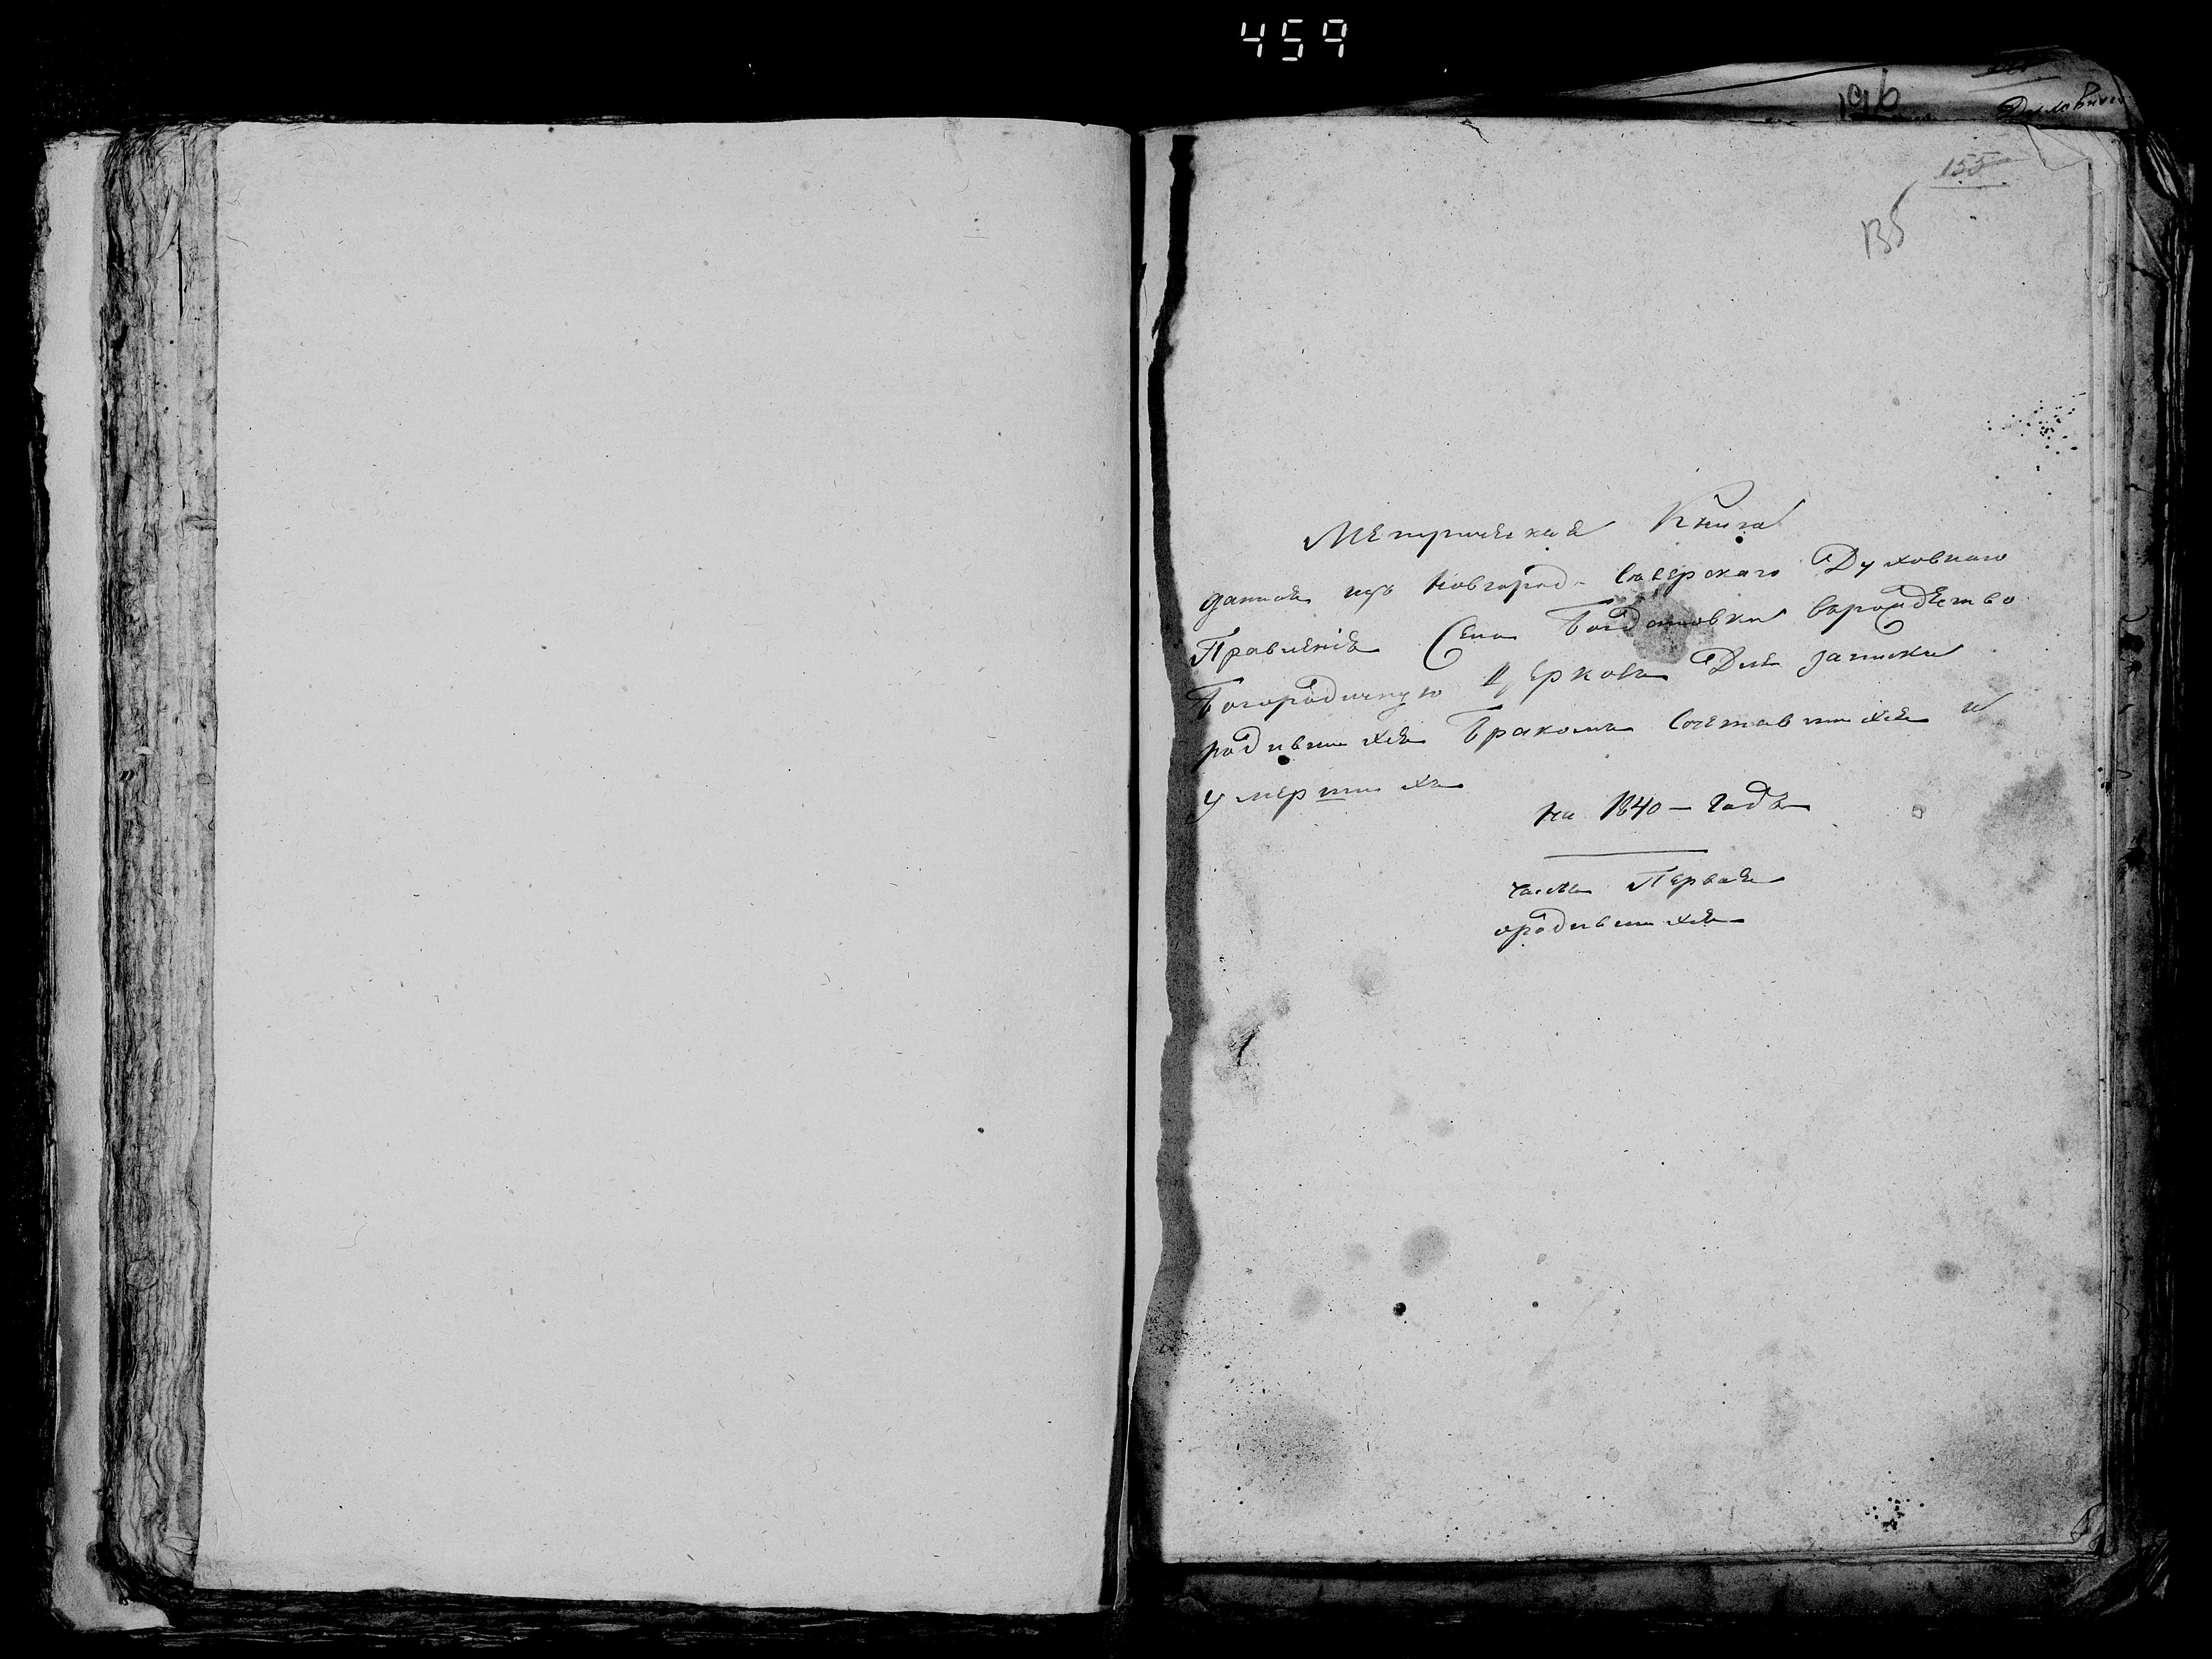 459
196
155
135
Метрическая Книга
данная изъ Новгород-Северскаго Духовнаго
Правления Села Богдановки врождество
Богородичную Церковь Для записки
родившихся Бракомъ Сочетавшихся и
умершихъ
на 1840 – Годъ
часть Первая
ородившихся